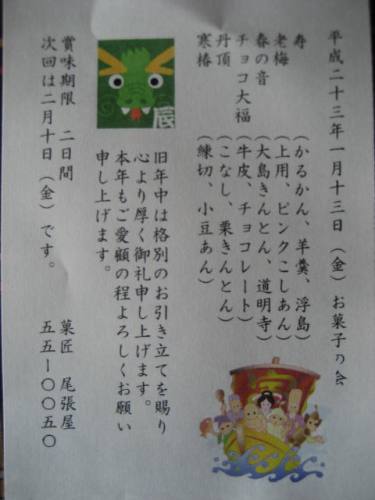 平成二十三年一月十三日（金）お菓子の会
寿　　　　（かるかん、羊羹、浮島）
老梅　　　（上用、ピンクこしあん）
春の音　　（大島きんとん、道明寺）
チョコ大福（牛皮、チョコレート）
丹頂　　　（こなし、栗きんとん）
寒椿　　　（練切、小豆あん）
辰
旧年中は格別のお引き立てを賜り
心より厚く御礼申し上げます。
本年もご愛顧の程よろしくお願い
申し上げます。
賞味期限　二日間
次回は二月十日（金）です。
菓匠　尾張屋
五五ー〇〇五〇